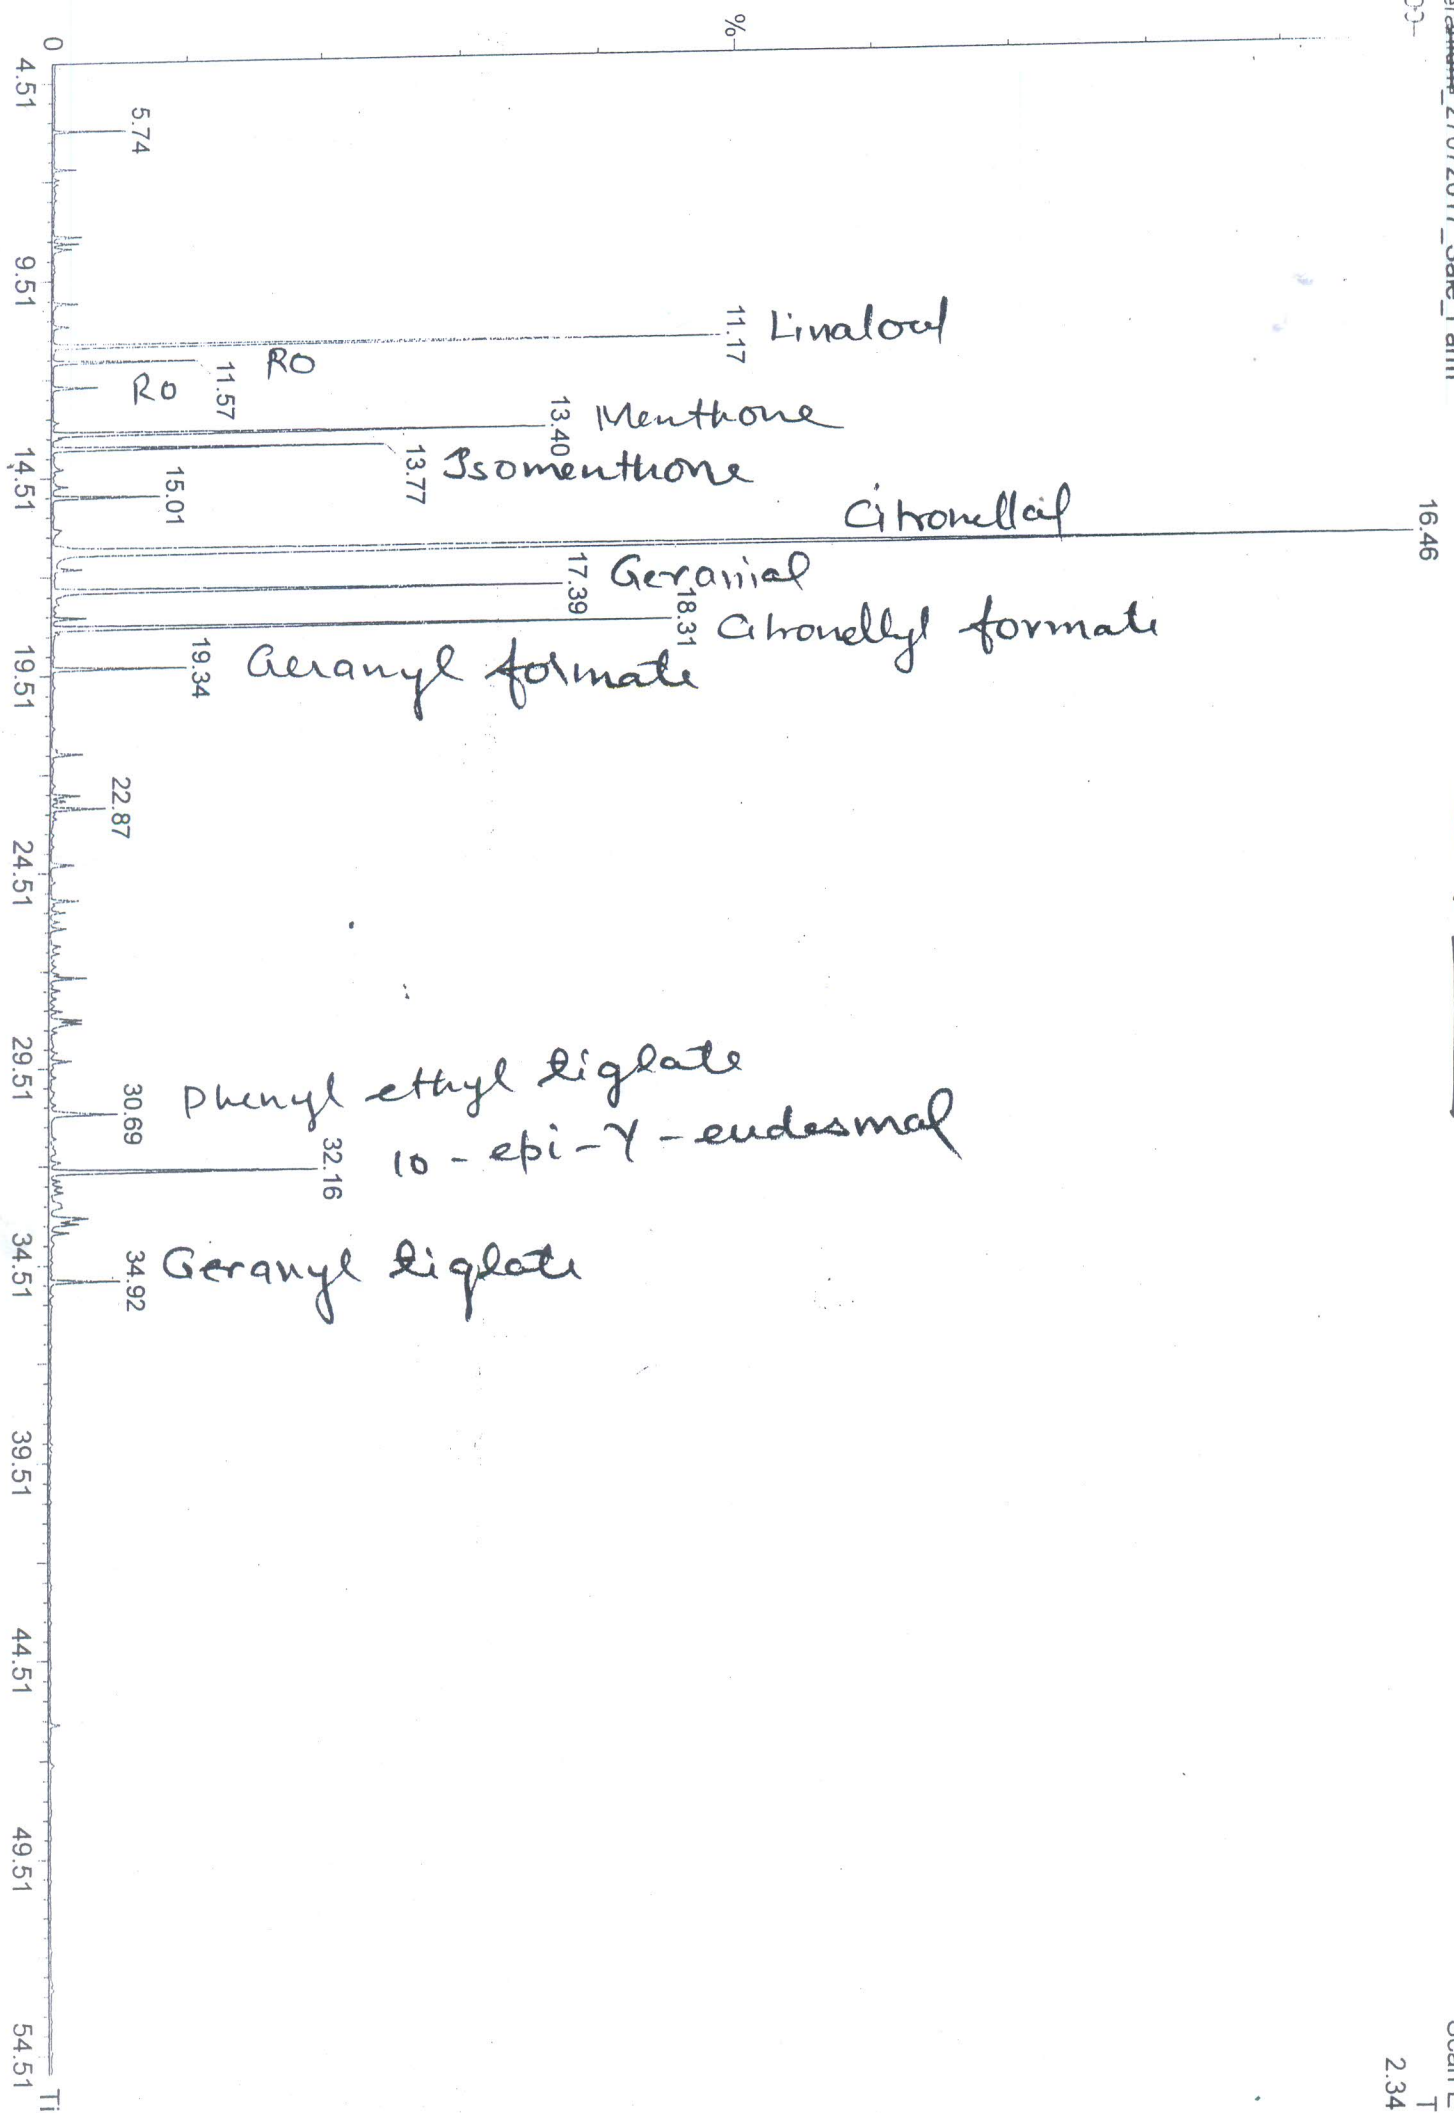 %
0
4.51
5.74
9.51
11.17 Linalool
11.57 RO
RO
13.40 Menthone
13.77 Isomenthone
14.51
15.01
16.46
17.39
18.31 Citronellyl formate
19.34 Geranyl formate
19.51
22.87
24.51
29.51
30.69 Phenyl ethyl tiglate
32.16 10-epi-γ-eudesmal
34.51
34.92 Geranyl tiglate
39.51
44.51
49.51
54.51
Ti
T
2.34